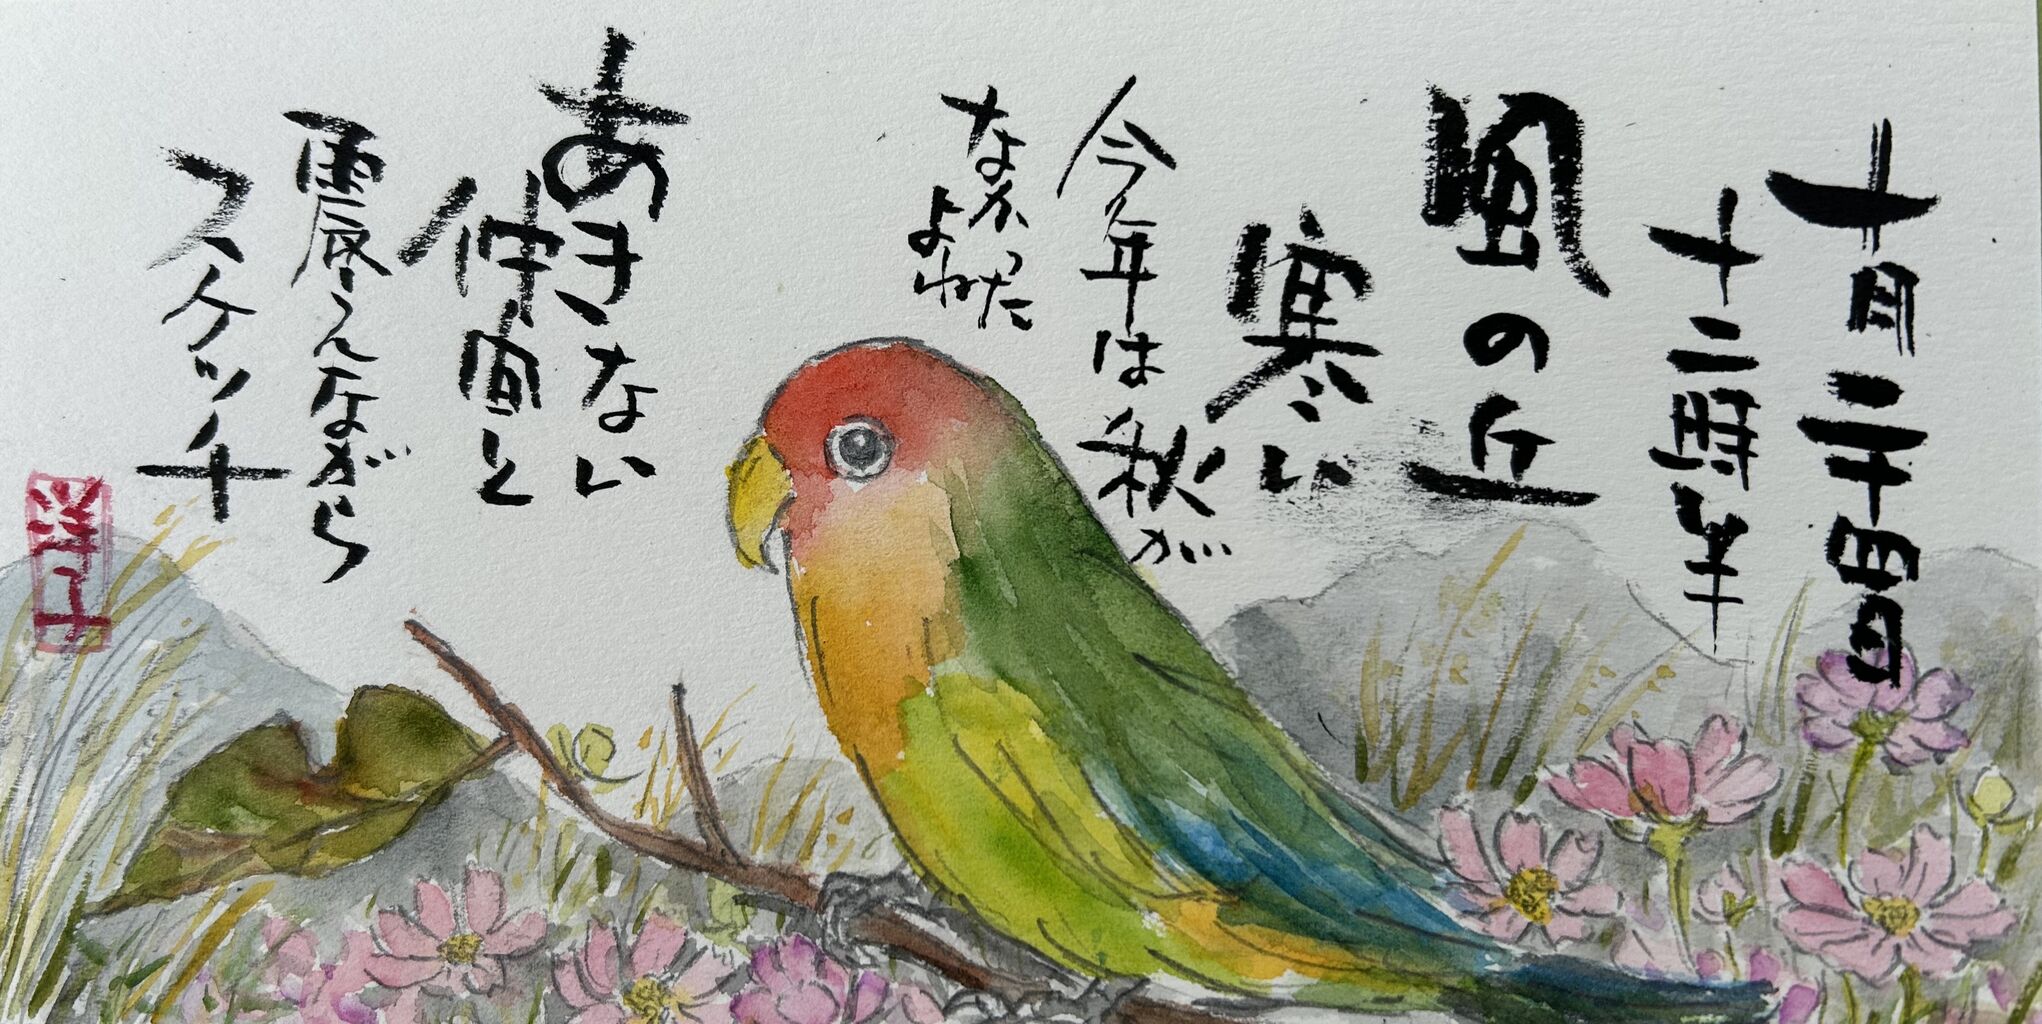 十月二十四日
十二時半
風の丘
寒い
今年は秋が
なかった
よね
あきない
仲間と
震えながら
スケッチ
洋子